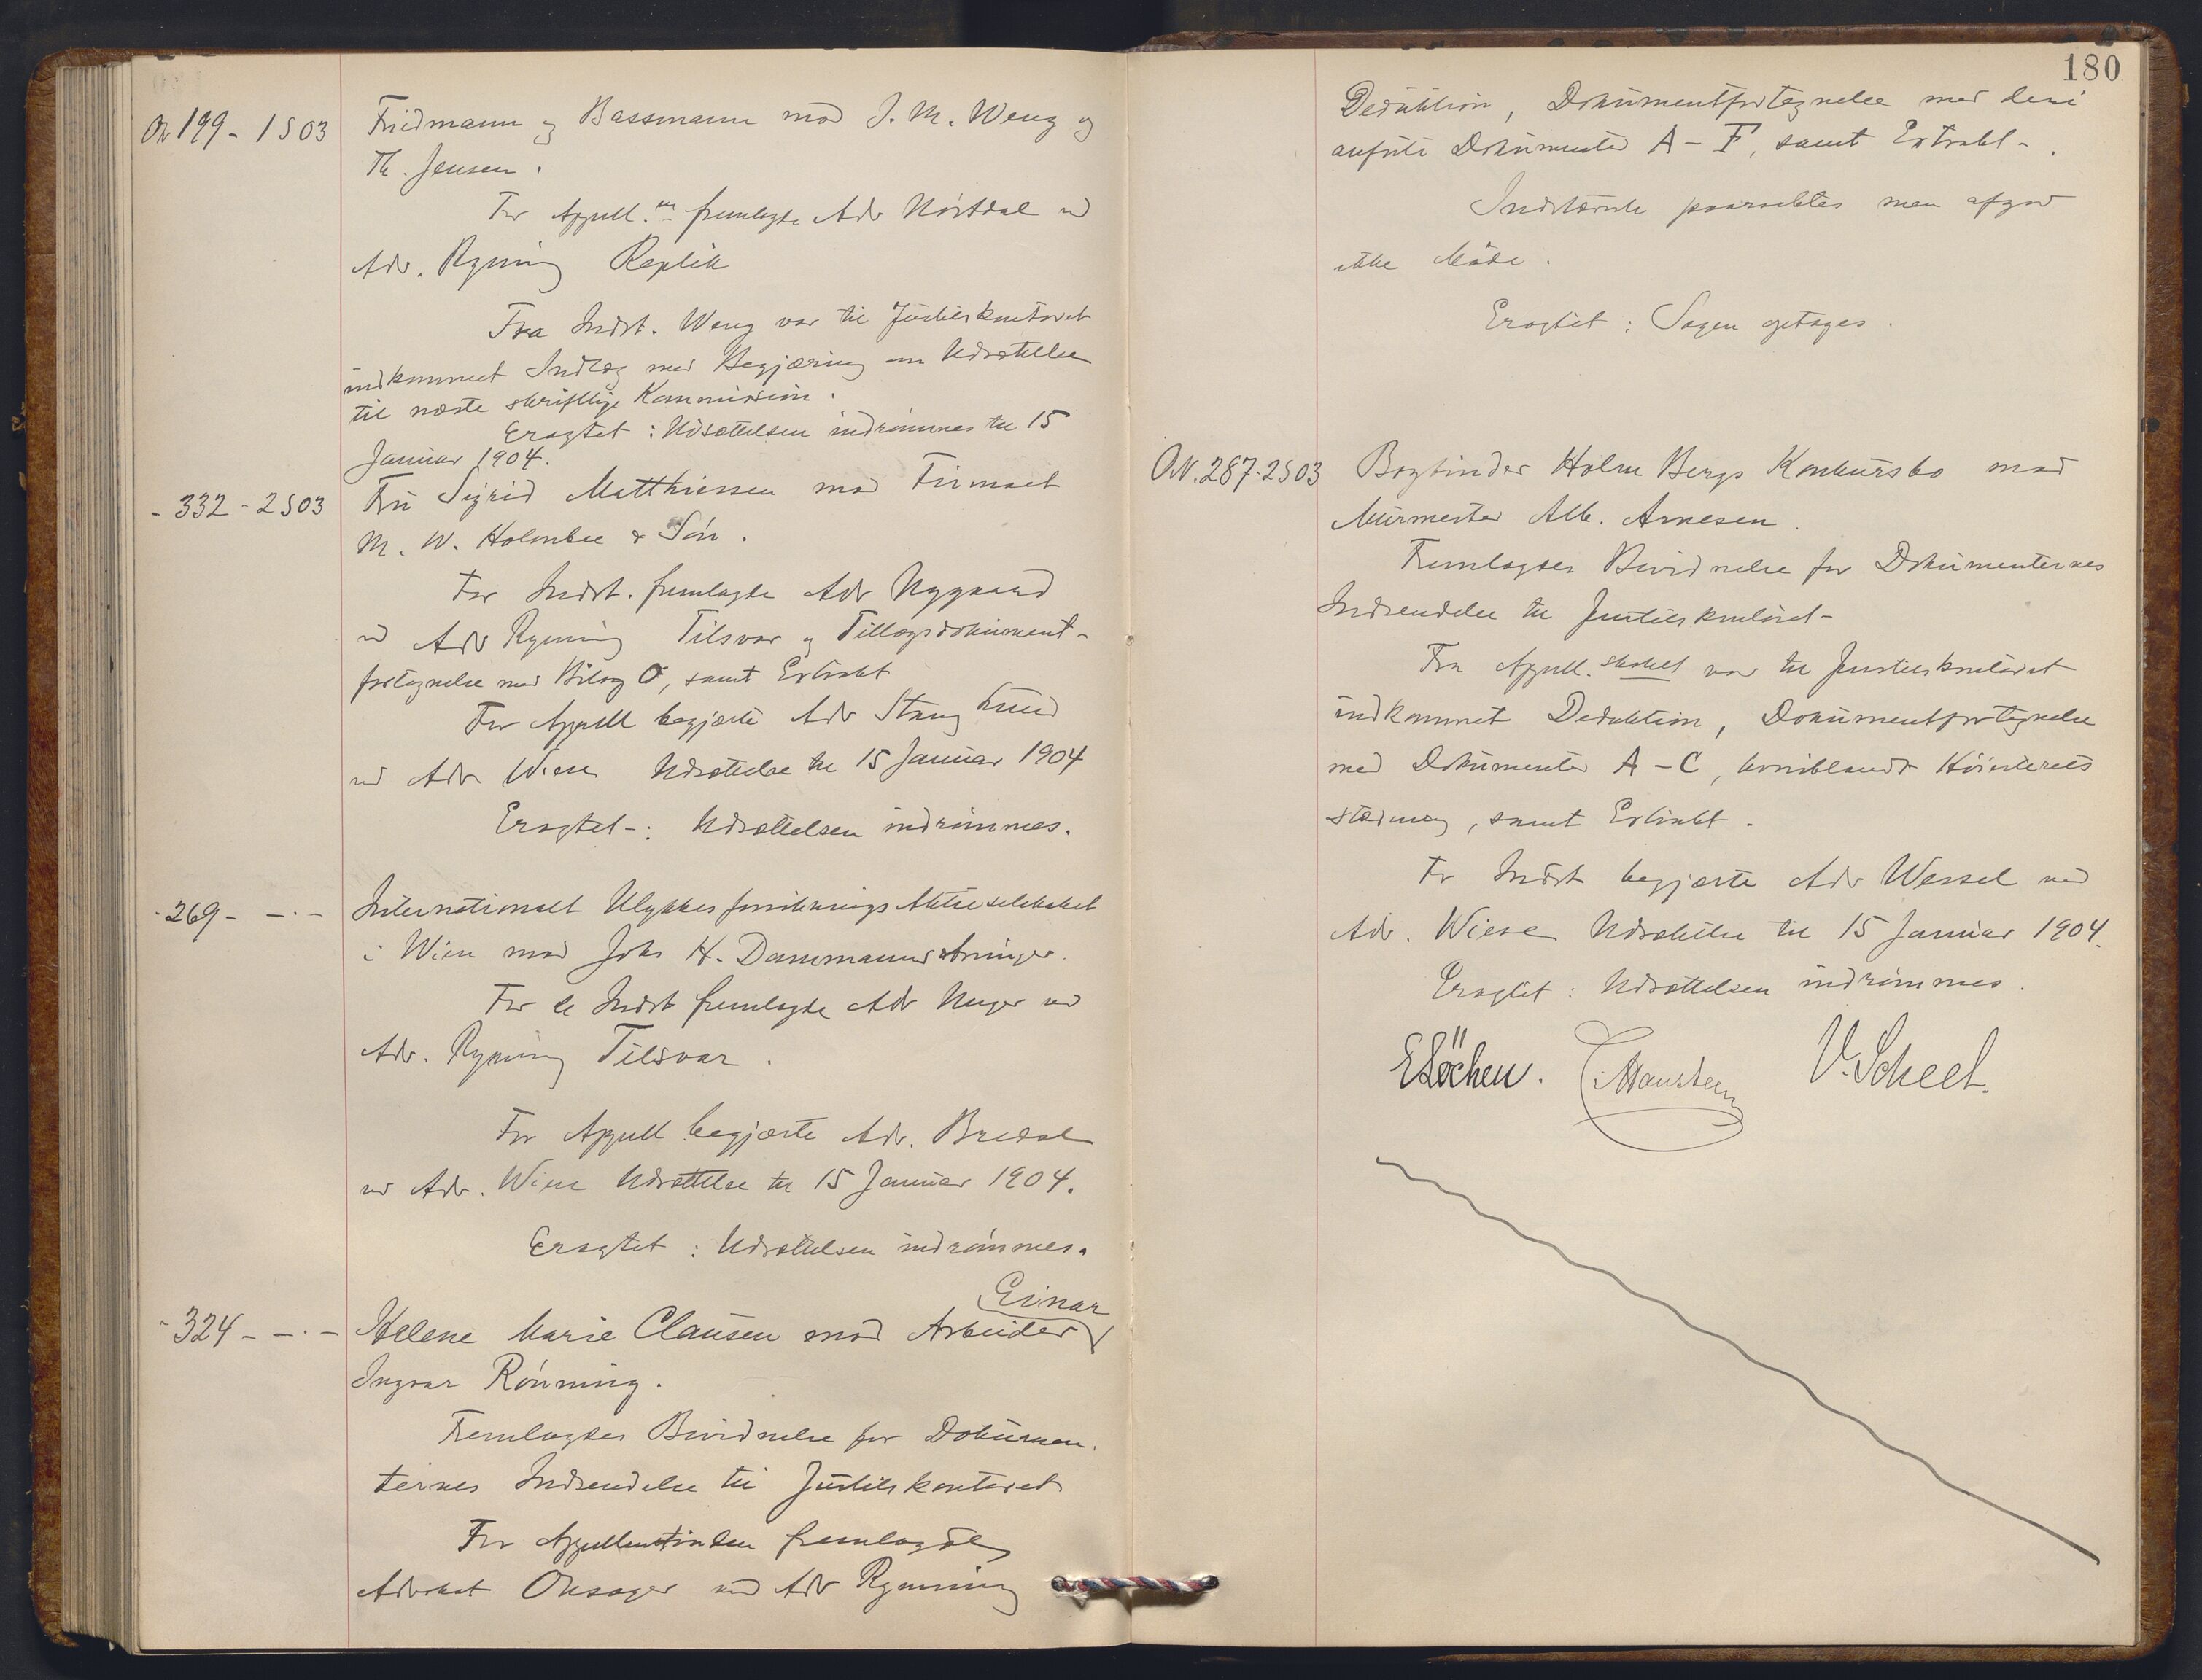 ON 199 - 1 S 03
Fridmann og Bassmann mod J. M. Weng og
Th. Jensen.
For Appell.ne fremlagde Adv Nørdal ved
Adv. Rynning Replik
Fra Indst. Weng var til Justitskontoret
indkommet Indlæg med Begjæring om Udsættelse
til næste skriftlige Kommission.
Eragtet: Udsættelsen indrømmes til 15
Januar 1904.
- 332 - 2 S 03
Fru Sigrid Matthiessen mod Firmaet
M. W. Holmboe & Søn.
For Indst. fremlagde Adv Nygaard
ved Adv Rynning Tilsvar og Tillægsdokument-
fortegnelse med Bilag O, samt Extrakt
For Appell begjærte Adv Stang Lund
ved Adv Wiese Udsættelse til 15 Januar 1904
Eragtet: Udsættelsen indrømmes.
- 269 - - . -
Internationalt Ulykkesforsikrings Aktieselskabet
i Wien mod Johs H. Dammanns arvinger.
For de Indst fremlagde Adv Unger ved
Adv. Rynning Tilsvar.
For Appell begjærte Adv. Bredal
ved Adv. Wiese Udsættelse til 15 Januar 1904.
Eragtet: Udsættelsen indrømmes.
- 324 - - . -
Einar
Helene Marie Clausen mod Arbeider
Ingvar Rønning.
Fremlagdes Bevidnelse for Dokumen-
ternes Indsendelse til Justitskontoret
For Appellantinden fremlagde
Advokat Onsager ved Adv Rynning
180
Deduktion, Dokumentfortegnelse med deri
anførte Dokumenter A - F, samt Extrakt -.
Indstævnte paaraabtes men afgav
ikke Møde.
Eragtet: Sagen optages.
ON. 287 - 2 S 03
Bogbinder Holm Bergs Konkursbo mod
Murmester Alb. Arnesen.
Fremlagdes Bevidnelse for Dokumenternes
Indsendelse til Justitskontoret -
Fra Appell.skabet var til Justitskontoret
indkommet Deduktion, Dokumentfortegnelse
med Dokumenter A - C, hvoriblandt Høiesterets
stævning, samt Extrakt.
For Indst begjærte Adv Wessel ved
Adv. Wiese Udsættelse til 15 Januar 1904.
Eragtet: Udsættelsen indrømmes.
E Løchen. Hansteen V. Scheel.